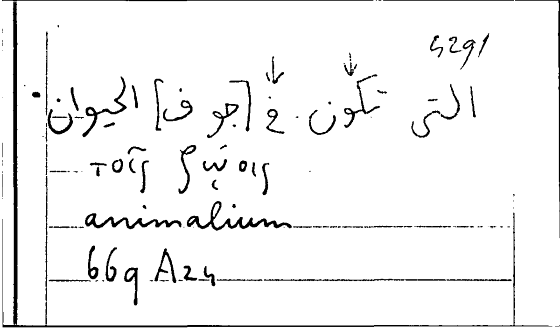 5291
التى تكون فى [جوف] الحيوان
τοῖς ζῴοις
animalium
669 A24